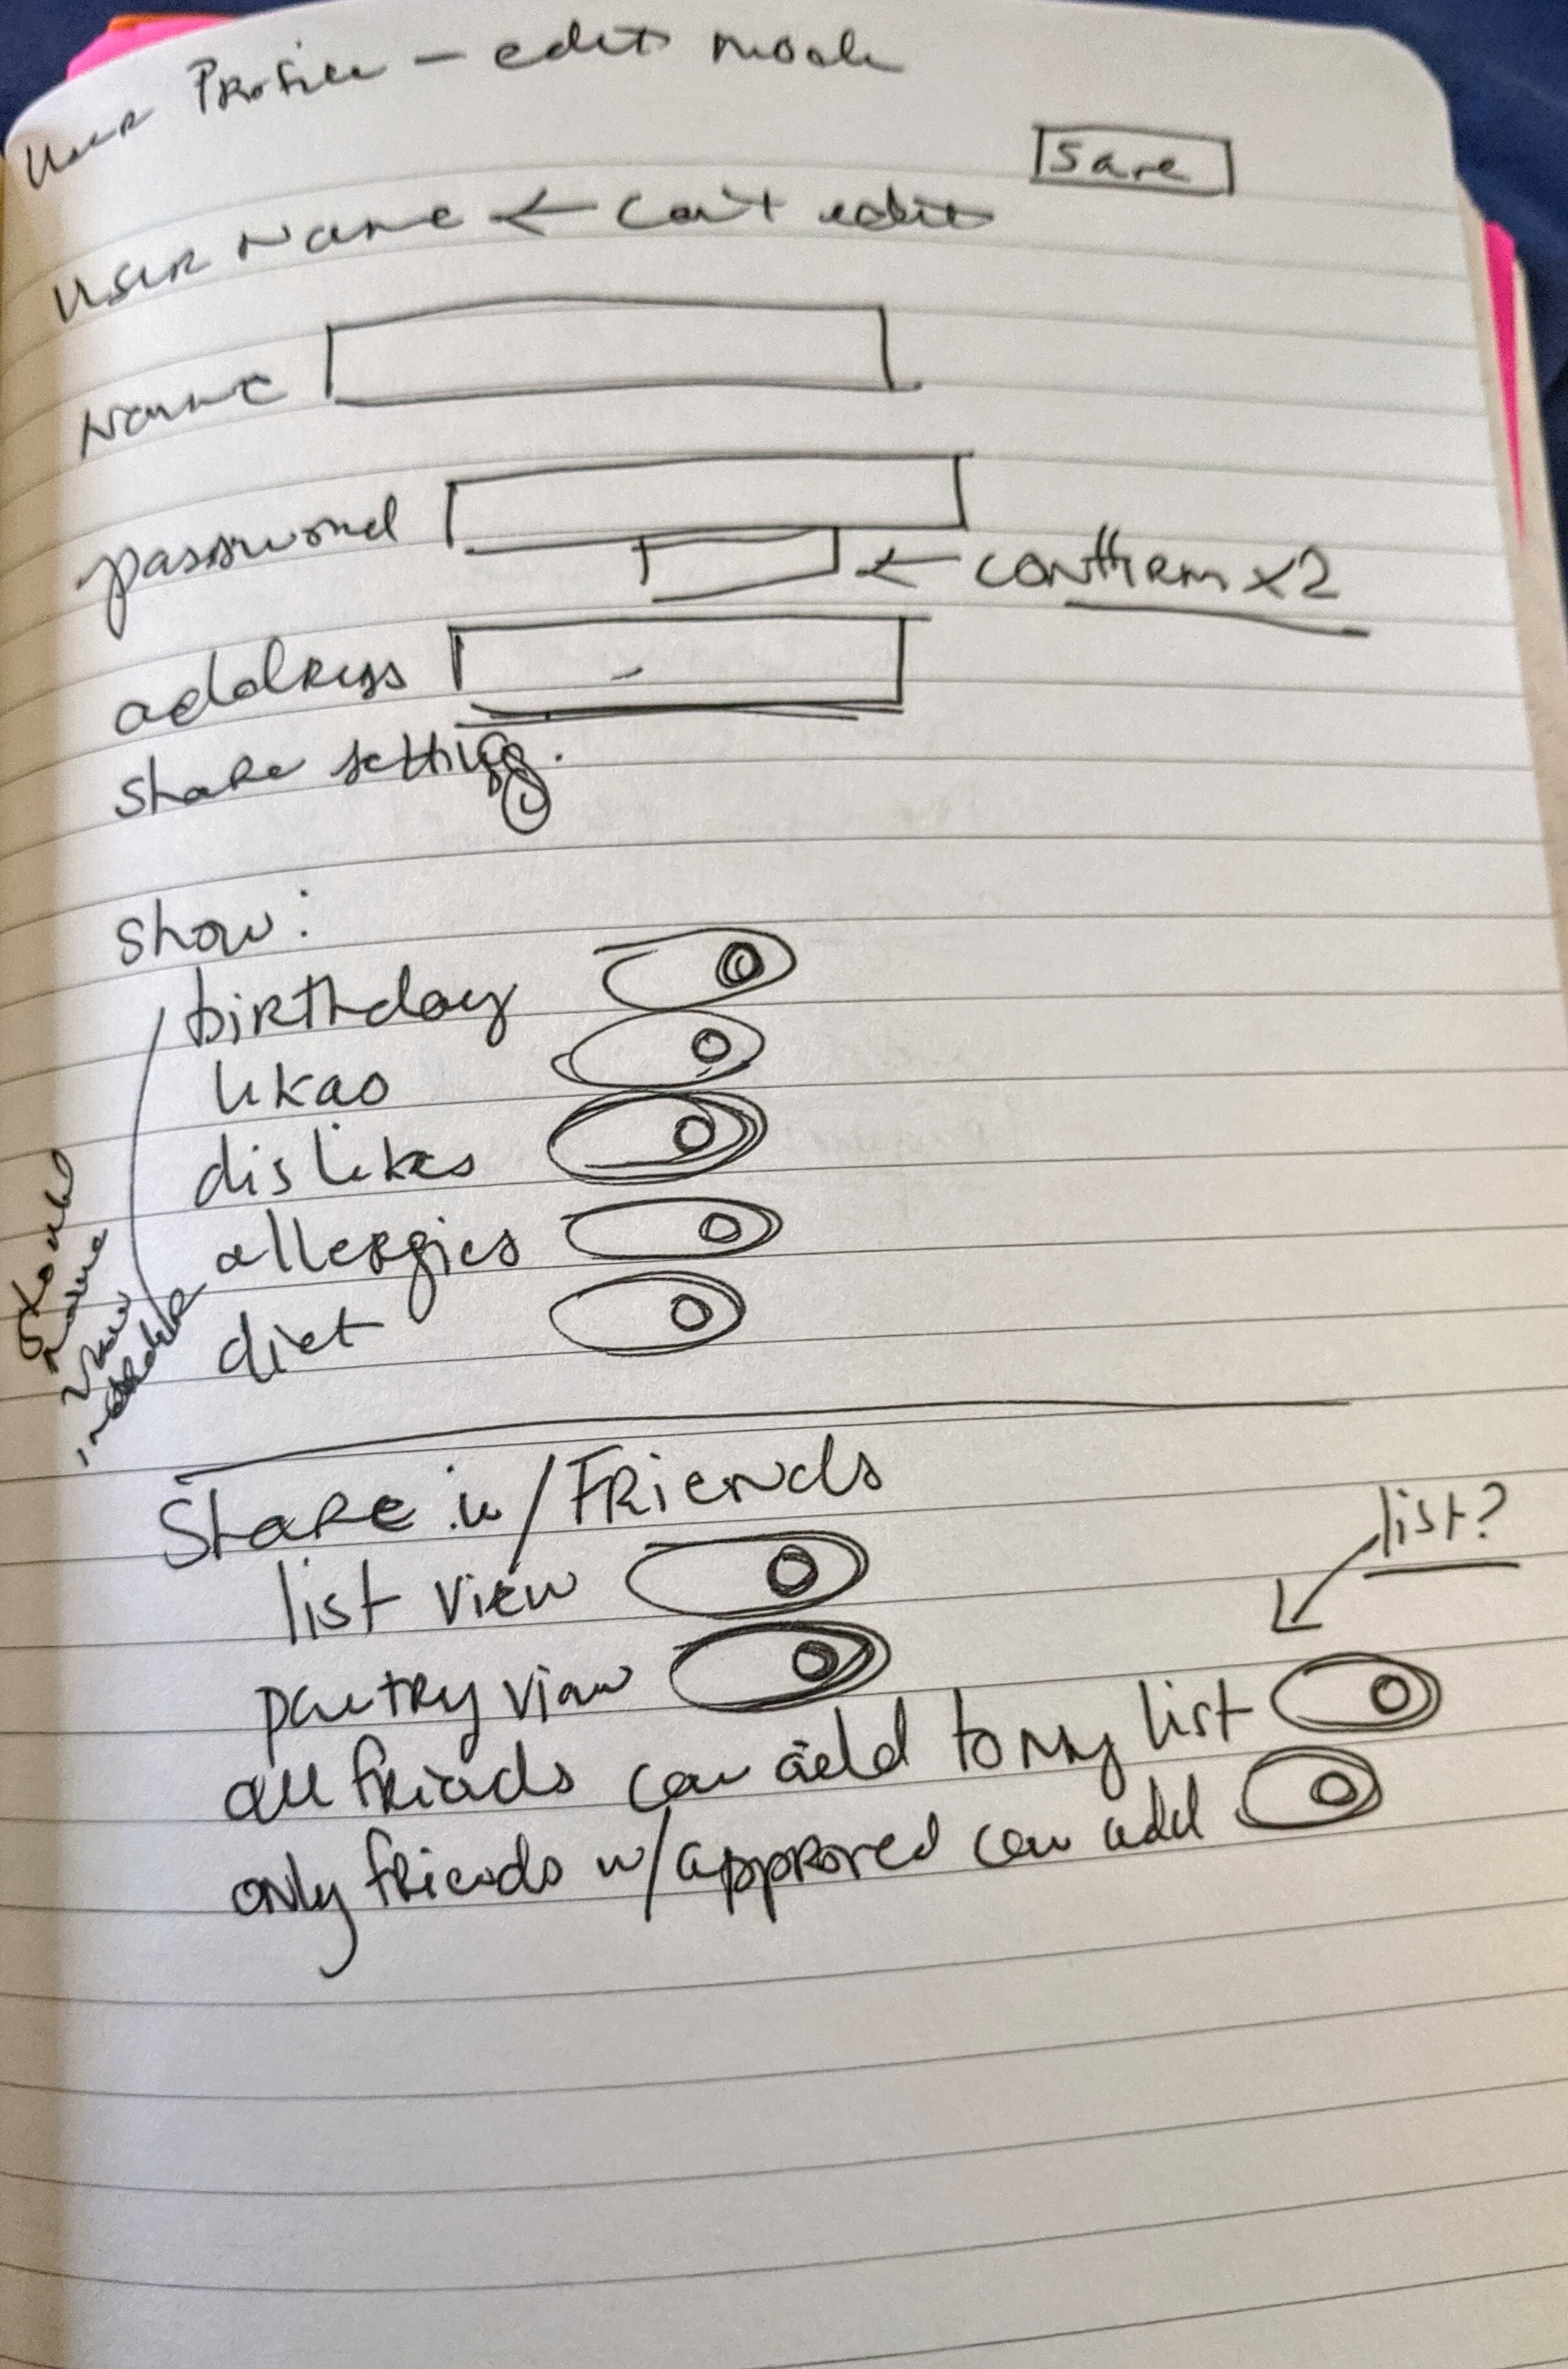 User Profile - edit mode
Save
User Name ← can't edit
Name
password
← confirm x2
address
share settings.
show:
birthday
likes
dislikes
allergies
diet
Share w/Friends
list view
list?
pantry view
all friends can add to my list
only friends w/approved can add